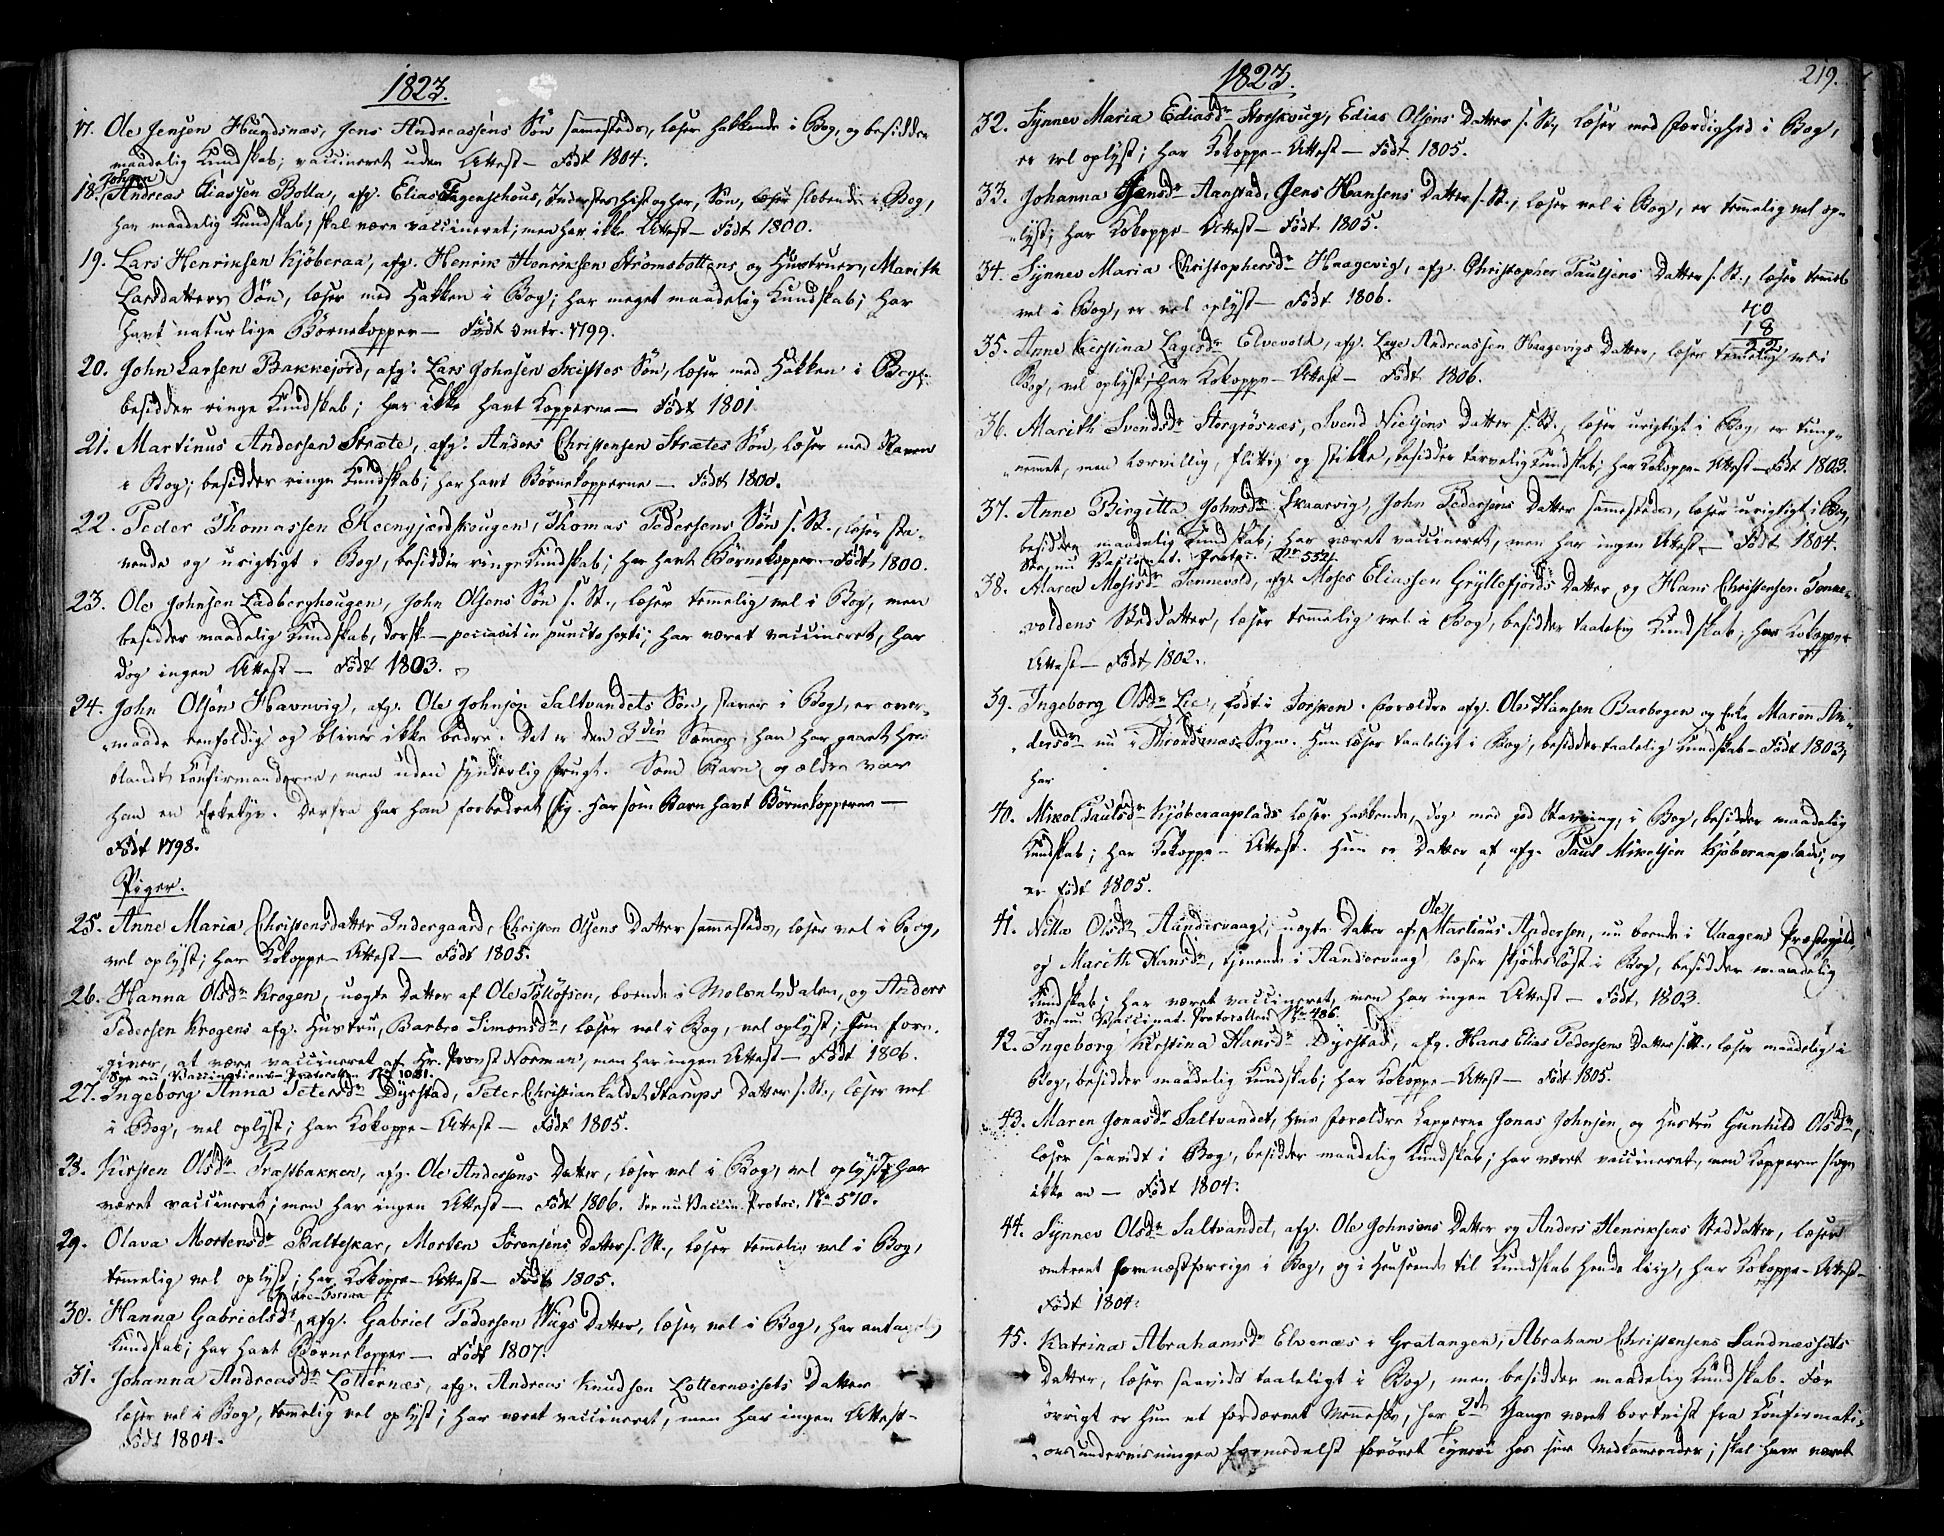 1823.
17. Ole Jensen Hundsnæs, Jens Andreassens Søn sammesteds, læser hakkende i Bog, og besidder
maadelig Kundskab; vaccineret uden Attest — Født 1804.
Johan
18. Andreas Eliassen Bolla, afg. Elias Fagenschous, Inderstes hist og her, Søn, læser slæbende i Bog,
har maadelig Kundskab; skal være vaccineret; men har ikke Attest — Født 1800.
19. Lars Henriksen Kjøberaa, afg. Henrik Henriksen Strømsbottens og Hustrues, Marith
Larsdatters Søn, læser med Hakken i Bog; har meget maadelig Kundskab; har
havt naturlige Børnekopper — Født omtr. 1799.
20. John Larsen Bakkejord, afg: Lars Johnsen Skiftes Søn, læser med Hakken i Bog,
besidder ringe Kundskab; har ikke havt Kopperne — Født 1801.
21. Martinus Andersen Stræte, afg: Anders Christensen Strætes Søn, læser med Staven
i Bog; besidder ringe Kundskab; har havt Børnekopperne — Født 1800.
22. Peder Thomassen, Thomas Pedersens Søn s. St., læser sta-
vende og urigtigt i Bog, besidder ringe Kundskab; har havt Børnekopper — Født 1800.
23. Ole Johnsen Ladberghougen, John Olsens Søn s. St., læser temmelig vel i Bog, men
besidder maadelig Kundskab, dorsk — peccavit in puncto sexti; har været vaccineret, har
dog ingen Attest — Født 1803.
24. John Olsen Havnvig, afg. Ole Johnsen Saltvandets Søn, staver i Bog, er over-
maade eenfoldig og bliver ikke bedre. Det er den 3die Sommer, han har gaaet her
blandt Confirmanderne, men uden synderlig Frugt. Som Barn og ældre var
han en Erketyv. Derfra har han forbedret sig. Har som Barn havt Børnekopperne —
Født 1798.
Piger.
25. Anne Maria Christensdatter Indergaard, Christen Olsens Datter sammesteds, læser vel i Bog,
vel oplyst; har Kokoppe-Attest — Født 1805.
26. Hanna Olsdr Krogen, uægte Datter af Ole Tollofsen, boende i Molselvdalen, og Anders
Pedersen Krogens afg. Hustru, Barbro Simonsdr, læser vel i Bog, vel oplyst; hun fore-
giver, at være vaccineret af Hr. Provst Norman, men har ingen Attest — Født 1806.
See nu Vaccinations-Protocollen No 1031.
27. Ingeborg Anna Petersdr Dyrstad, Peter Christian Kaldet Starups Datter s. St., læser vel
i Bog, vel oplyst; har Kokoppe-Attest — Født 1805.
28. Kirsten Olsdr Præstbakken, afg. Ole Andersens Datter, læser vel i Bog, vel oplyst; har
været vaccineret; men har ingen Attest — Født 1806. See nu Vaccin. Protoc. No 510.
29. Olava Mortensdr Balteskar, Morten Sørensens Datter s. St., læser temmelig vel i Bog,
temmelig vel oplyst; har Kokoppe-Attest — Født 1805.
30. Hanna Gabrielsdr afg. Gabriel Pedersen Wiigs Datter, læser vel i Bog, har antagelig
Kundskab; har havt Børnekopper — Født 1807.
31. Johanna Andreasdr Lotternæs, afg. Andreas Knudsen Lotternæssets Datter
læser vel i Bog, temmelig vel oplyst; har været vaccineret, men har ingen Attest —
Født 1804.
1823.
219.
32. Synnev Maria Ediasdr, Edias Olsens Datter s. St., læser med Færdighed i Bog,
er vel oplyst; har Kokoppe-Attest — Født 1805.
33. Johanna Jensdr Aanstad, Jens Hansens Datter s. St., læser vel i Bog, er temmelig vel op-
lyst; har Kokoppe-Attest — Født 1805.
34. Synnev Maria Christophersdr Haagevig, afg. Christopher Paulsens Datter s. St., læser temmelig
vel i Bog, er vel oplyst — Født 1806.
40
18
22
35. Anne Kirstina Lagesdr Elvevold, afg. Lage Andreassen Haagevigs Datter, læser temmelig vel i
Bog, vel oplyst; har Kokoppe-Attest — Født 1806.
36. Marith Svendsdr Storgrøsnæs, Svend Nielsens Datter s. St., læser urigtigt i Bog, er tung-
nemmet, men lærvillig, flittig og stikke, besidder tarvelig Kundskab; har Kokoppe-Attest — Født 1803.
37. Anne Birgitta Johnsdr Skaarvig, John Pedersens Datter sammesteds, læser urigtigt i Bog,
besidder maadelig Kundskab; har været vaccineret, men har ingen Attest — Født 1804.
See nu Vaccinat. Protoc. No 552.
38. Maren Mosesdr Tennevold, afg. Moses Eliassen Gryllefjords Datter og Hans Christensen Tenne-
voldens Steddatter, læser temmelig vel i Bog, besidder taalelig Kundskab; har Kokoppe-
Attest — Født 1802.
39. Ingeborg Olsdr Lie, født i Torsken. Forældre afg. Ole Hansen Barbogen og Enke Maren An-
dersdr nu i Throndenæs Sogn. Hun læser taaleligt i Bog, besidder taalelig Kundskab — Født 1803;
har
40. Mikol Paulsdr Kjøberaaplads læser hakkende, dog med god Stavning, i Bog, besidder maadelig
Kundskab; har Kokoppe-Attest. Hun er Datter af afg. Paul Mikelsen Kjøberaaplads, og
er født 1805.
41. Nilla Olsdr Aandervaag, uægte Datter af Ole Martinus Andersen, nu boende i Vaagens Præstegield,
og Marith Hansdr, tjenende i Aandervaag, læser skjødesløst i Bog, besidder maadelig
Kundskab; har været vaccineret, men har ingen Attest — Født 1803.
See nu Vaccinat. Protocollen No 486.
42. Ingeborg Kirstina Hansdr Dyrstad, afg. Hans Elias Pedersens Datter s. St., læser maadelig i
Bog, besidder maadelig Kundskab; har Kokoppe-Attest — Født 1805.
43. Maren Jonasdr Saltvandet, hvis Forældre Lapperne Jonas Johnsen og Hustru Gunhild Olsdr,
læser saavidt i Bog, besidder maadelig Kundskab; har været vaccineret, men Kopperne slogs
ikke an — Født 1804.
44. Synnev Olsdr Saltvandet, afg. Ole Johnsens Datter og Anders Henriksens Steddatter, læser
omtrent som næstforrige i Bog, og i Henseende til Kundskab hende liig, har Kokoppe-Attest —
Født 1804.
45. Katrina Abrahamsdr Elvenæs i Gratangen, Abraham Christensens Sandnæssets
Datter, læser saavidt taaleligt i Bog, men besidder maadelig Kundskab. For
øvrigt er hun et fordærvet Menneske, har 2de Gange været bortviist fra Confirmati-
onsundervisningen formedelst forøvet Tyverie hos sine Medkamerader; skal have været